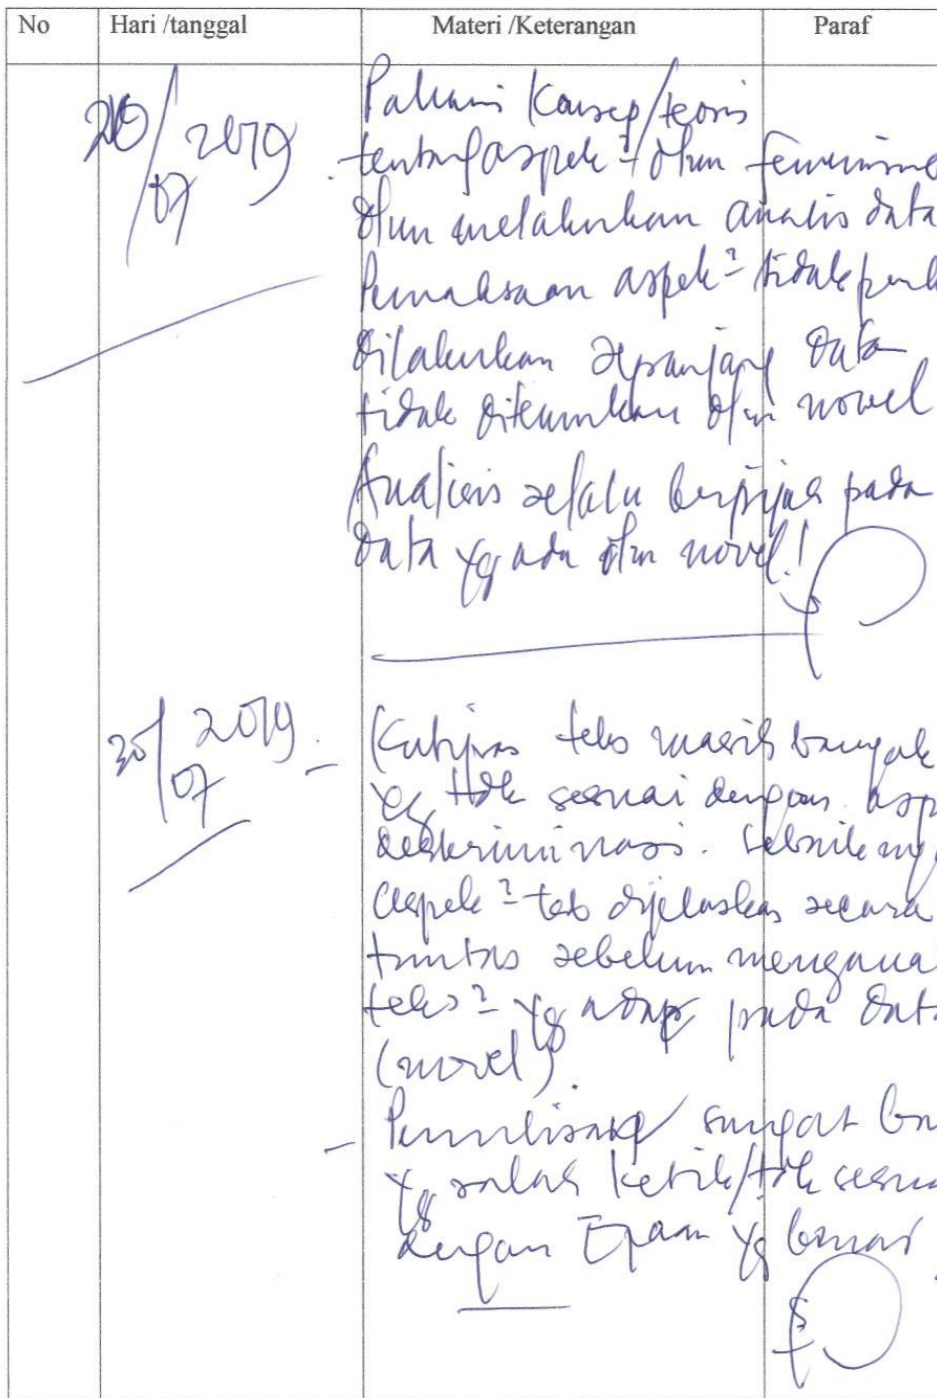 No Hari /tanggal Materi /Keterangan Paraf
Pahami Konsep/teoris
20/07 2019. tentang aspek² dlm feminisme
dlm melakukan analis data
Pemaksaan aspek² tidak perl
dilakukan sepanjang data
tidak ditemukan dlm novel
Analisis selalu berpijak pada
data yg ada dlm novel!
30/07 2019. - Kutipan teks masih banyak
yg tdk sesuai dengan asp
deskriminasi. Sebaiknya
aspek² tsb dijelaskan secara
tuntas sebelum menganal
teks² yg ada pada data
(novel).
- Penulisan sangat ban
yg salah ketik/tdk sesua
dengan Ejaan yg benar